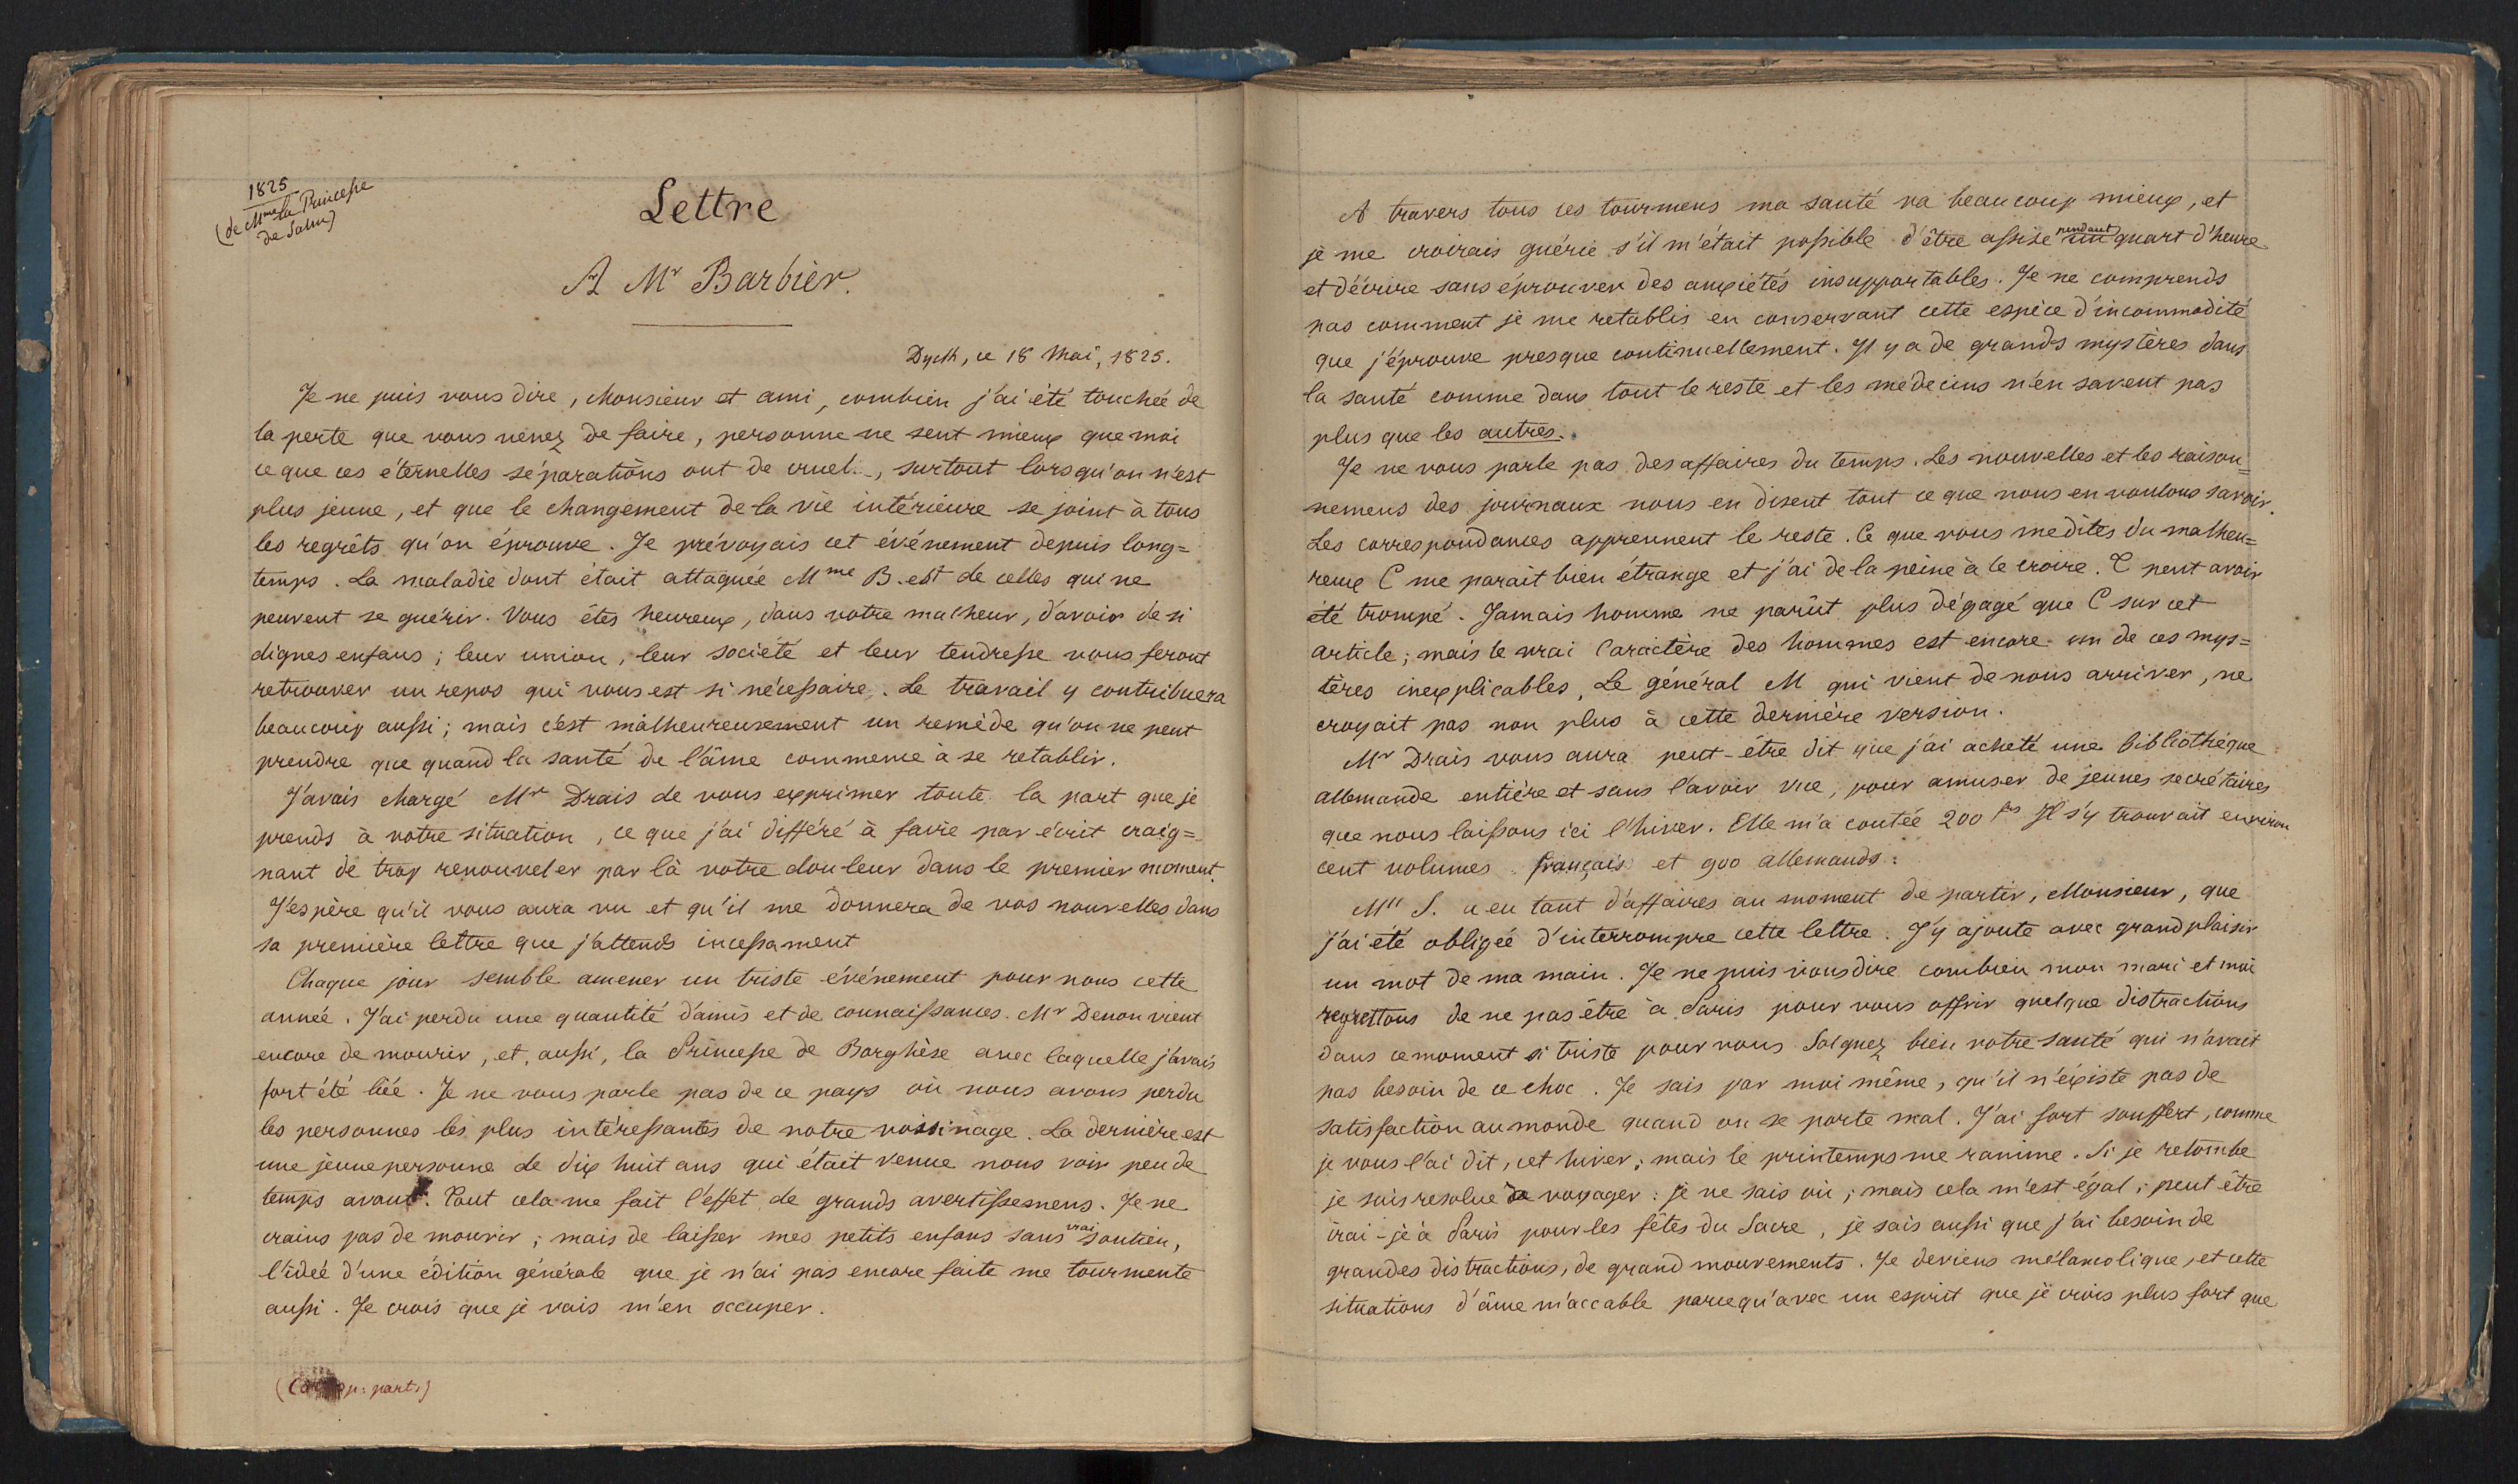 1825
(de Mme la Princesse
de Salm)
Lettre
A Mr Barbier.
Dyck, ce 18 Mai, 1825.
Je ne puis vous dire, Monsieur et ami, combien j'ai été touchée de
la perte que vous venez de faire, personne ne sent mieux que moi
ce que ces éternelles séparations ont de cruel, surtout lorsqu'on n'est
plus jeune, et que le changement de la vie intérieure se joint à tous
les regrêts qu'on éprouve. Je prévoyais cet événement depuis long=
temps. La maladie dont était attaquée Mme B. est de celles qui ne
peuvent se guérir. Vous êtes heureux, dans votre malheur, d'avoir de si
dignes enfans; leur union, leur société et leur tendresse vous feront
retrouver un repos qui vous est si nécessaire. Le travail y contribuera
beaucoup aussi; mais c'est malheureusement un remède qu'on ne peut
prendre que quand la santé de l'âme commence à se retablir.
J'avais chargé Mr Drais de vous exprimer toute la part que je
prends à votre situation, ce que j'ai différé à faire par écrit craig=
nant de trop renouveler par là votre douleur dans le premier moment.
J'espère qu'il vous aura vu et qu'il me donnera de vos nouvelles dans
sa première lettre que j'attends incessament
Chaque jour semble amener un triste événement pour nous cette
année. J'ai perdu une quantité d'amis et de connaissances. Mr Denon vient
encore de mourir, et, aussi, la Princesse de Borghèse avec laquelle j'avais
fort été liée. Je ne vous parle pas de ce pays où nous avons perdu
les personnes les plus intéressantes de notre voisinage. La dernière est
une jeune personne de dix huit ans qui était venue nous voir peu de
temps avant. Tout cela me fait l'effet de grands avertissemens. Je ne
crains pas de mourir; mais de laisser mes petits enfans sans vrai soutien,
l'ideé d'une édition générale que je n'ai pas encore faite me tourmente
aussi. Je crois que je vais m'en occuper.
p: part.)
A travers tous ces tourmens ma santé va beaucoup mieux, et
je me croirais guérie s'il m'était possible d'être assise pendant un quart d'heure
et d'écrire sans éprouver des anxiétés insupportables. Je ne comprends
pas comment je me retablis en conservant cette espèce d'incommodité
que j'éprouve presque continuellement. Il y a de grands mystères dans
la santé comme dans tout le reste et les médecins n'en savent pas
plus que les autres.
Je ne vous parle pas des affaires du temps. Les nouvelles et les raison=
nemens des journaux nous en disent tout ce que nous en voulons savoir.
Les correspondances apprennent le reste. Ce que vous me dites du malheu=
reux C me parait bien étrange et j'ai de la peine à le croire. C peut avoir
été trompé. Jamais homme ne parût plus dégagé que C sur cet
article; mais le vrai Caractère des hommes est encore un de ces mys=
tères inexplicables, Le général M qui vient de nous arriver, ne
croyait pas non plus à cette dernière version.
Mr Drais vous aura peut-être dit que j'ai acheté une bibliothèque
allemande entière et sans l'avoir vue, pour amuser de jeunes secrétaires
que nous laissons ici l'hiver. Elle m'a coutée 200 fs Il s'y trouvait environ
cent volumes français et 900 allemands:
Mll S. a eu tant d'affaires au moment de partir, Monsieur, que
j'ai été obligée d'interrompre cette lettre. J'y ajoute avec grand plaisir
un mot de ma main. Je ne puis vous dire combien mon mari et moi
regrettons de ne pas être à Paris pour vous offrir quelque distractions
dans ce moment si triste pour vous Soignez bien votre santé qui n'avait
pas besoin de ce choc. Je sais par moi même, qu'il n'éxiste pas de
satisfaction au monde quand on se porte mal. J'ai fort souffert, comme
je vous l'ai dit, cet hiver; mais le printemps me ranime. Si je retombe
je suis resolue de voyager: je ne sais où; mais cela m'est égal; peut être
irai-je à Paris pour les fêtes du Sacre, je sais aussi que j'ai besoin de
grandes distractions, de grand mouvements. Je deviens mélancolique, et cette
situations d'âme m'accable parcequ'avec un esprit que je crois plus fort que